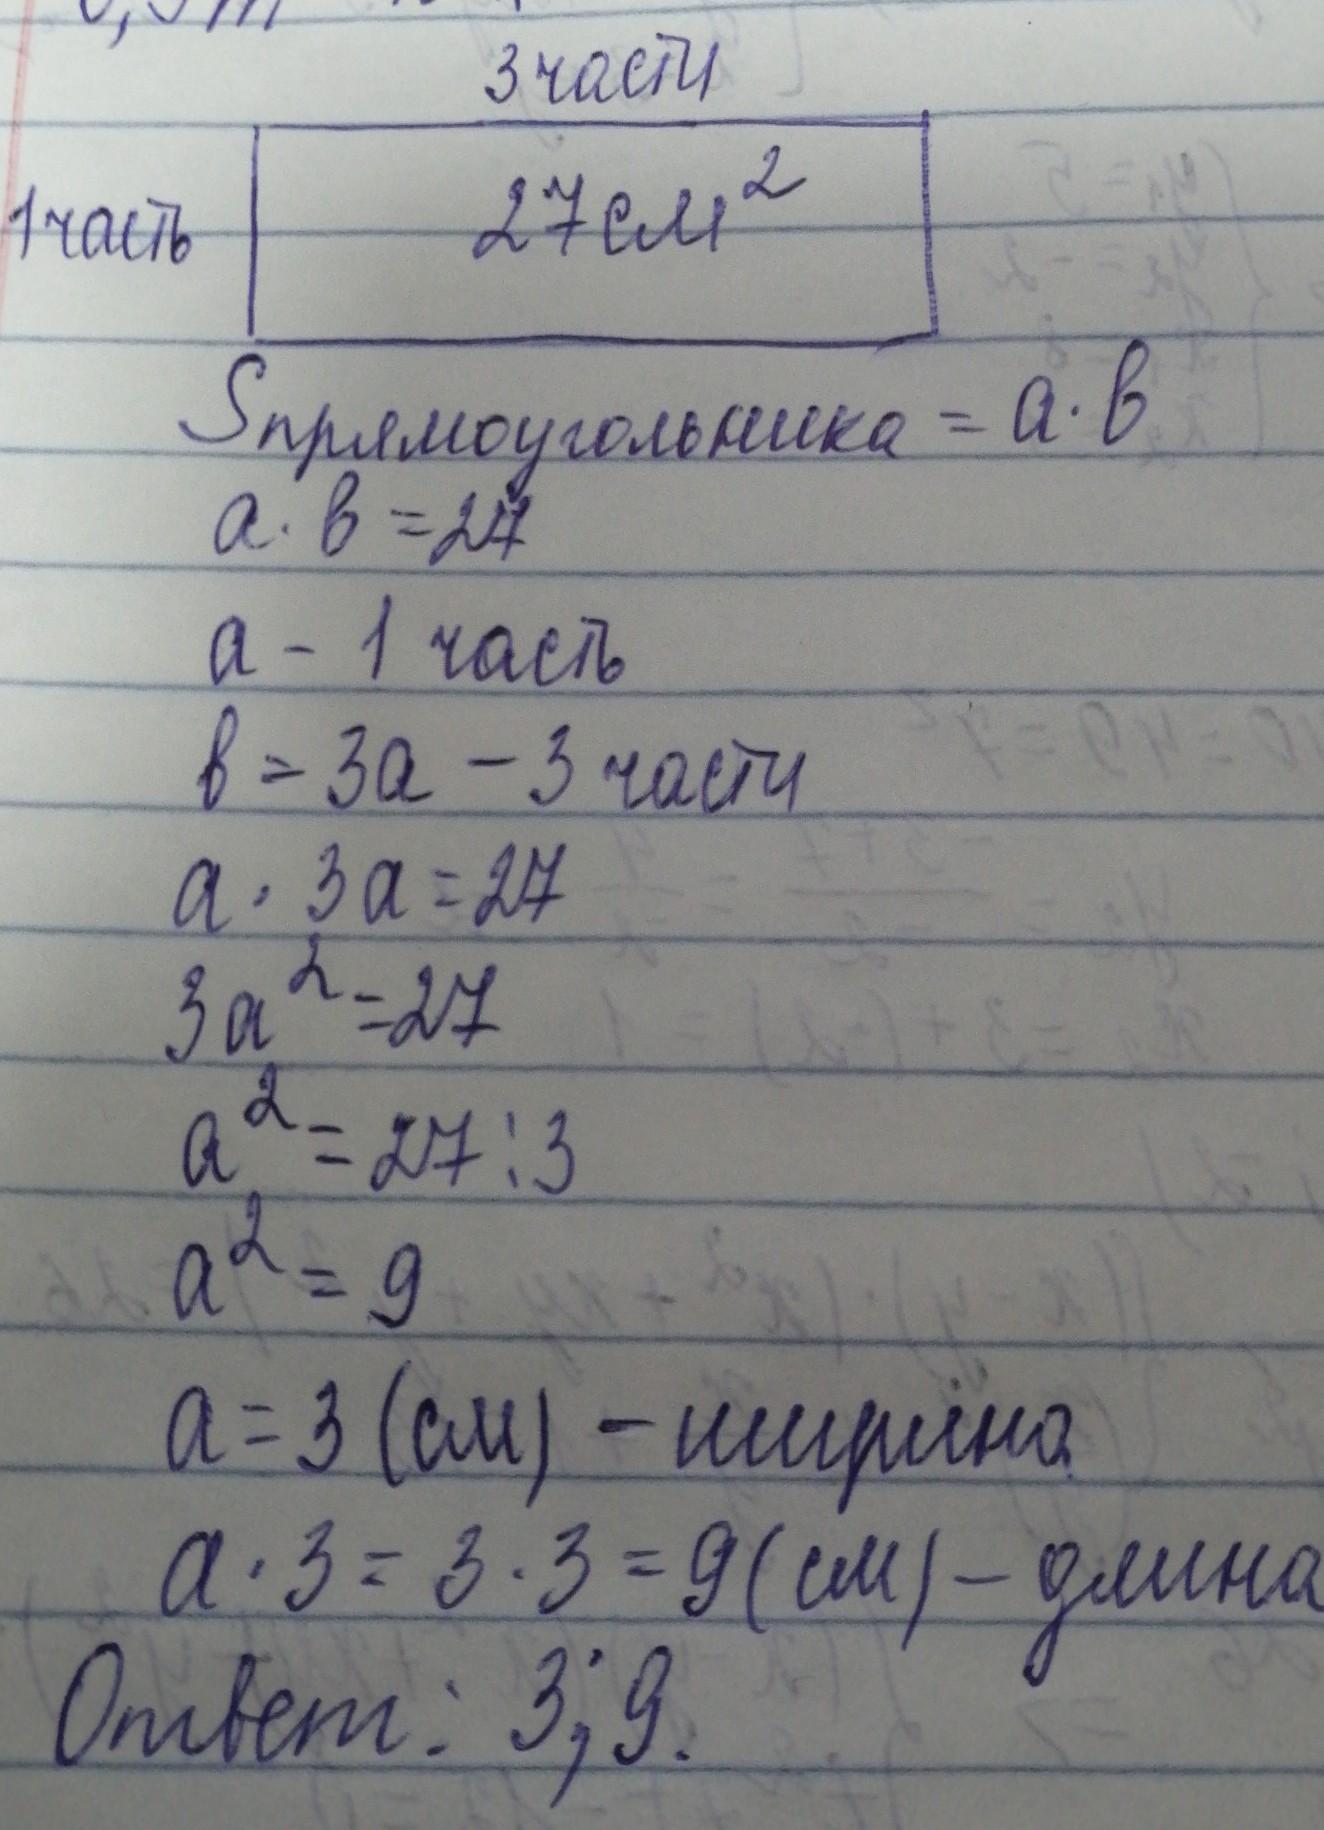 3 части
1 часть
27 см²
Sпрямоугольника = а · в
а · в = 27
а - 1 часть
в = 3а - 3 части
а · 3а = 27
3а² = 27
а² = 27 : 3
а² = 9
а = 3 (см) - ширина
а · 3 = 3 · 3 = 9 (см) - длина
Ответ: 3; 9.